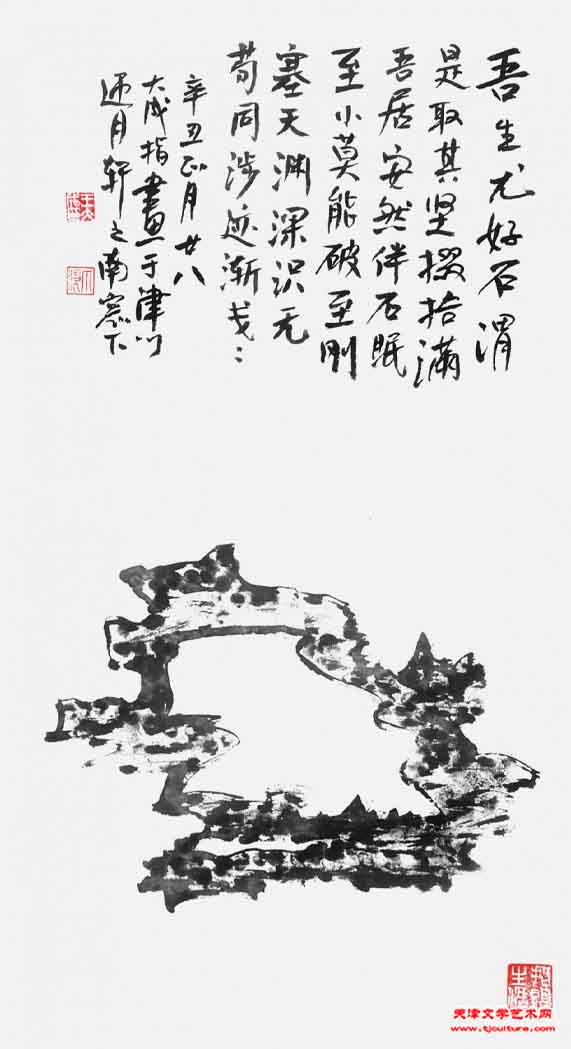 吾生尤好石谓
是取其坚掇拾满
吾居安然伴石眠
至小莫能破至刚
塞天渊深识无
苟同涉迹渐戋:
辛丑正月廿八
大成指畫于津门
月轩之南窓下
天津文学艺术网
www.tjculture.com